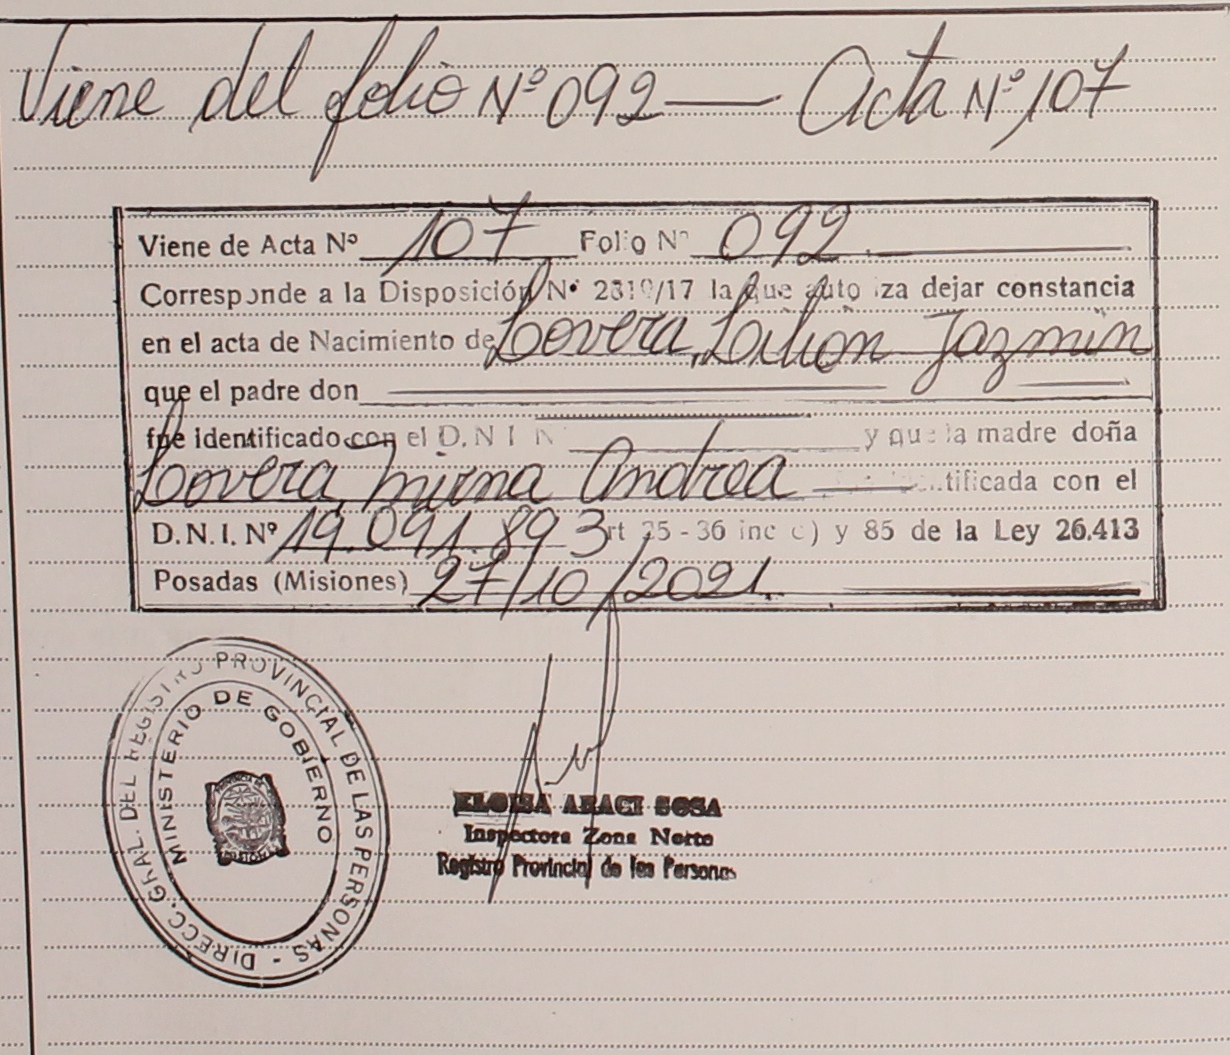 Viene del folio Nº 092 — Acta Nº 107
Viene de Acta Nº 107 Folio Nº 092
Corresponde a la Disposición Nº 2819/17 la que autoriza dejar constancia
en el acta de Nacimiento de Lovera, Lilian Jazmin
que el padre don
fue identificado con el D.N.I Nº y que la madre doña
Lovera, Mirna Andrea identificada con el
D.N.I. Nº 19.091.893 rt 25 - 36 inc c) y 85 de la Ley 26.413
Posadas (Misiones) 27/10/2021.
DIRECC. GRAL. DEL REGISTRO PROVINCIAL DE LAS PERSONAS -
MINISTERIO DE GOBIERNO
ELOISA ARACI SOSA
Inspectora Zona Norte
Registro Provincial de las Personas